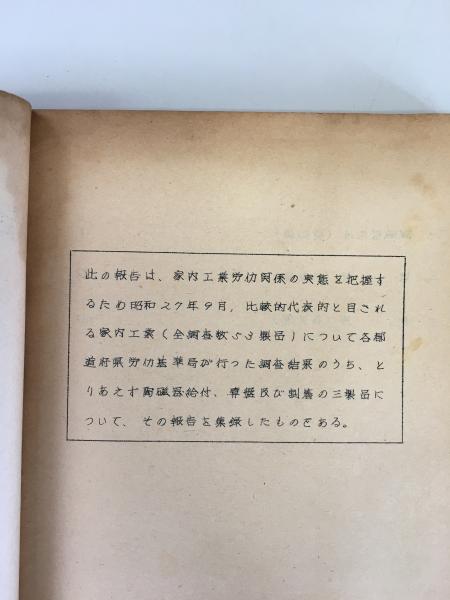 此の報告は、家内工業労働関係の実態を把握す
るため昭和27年9月,比較的代表的と目され
る家内工業(全調査数53製品)について各都
道府県労働基準局が行った調査結果のうち、と
りあえず陶磁器絵付、及び の三製品に
ついて、その報告を集録したものである。